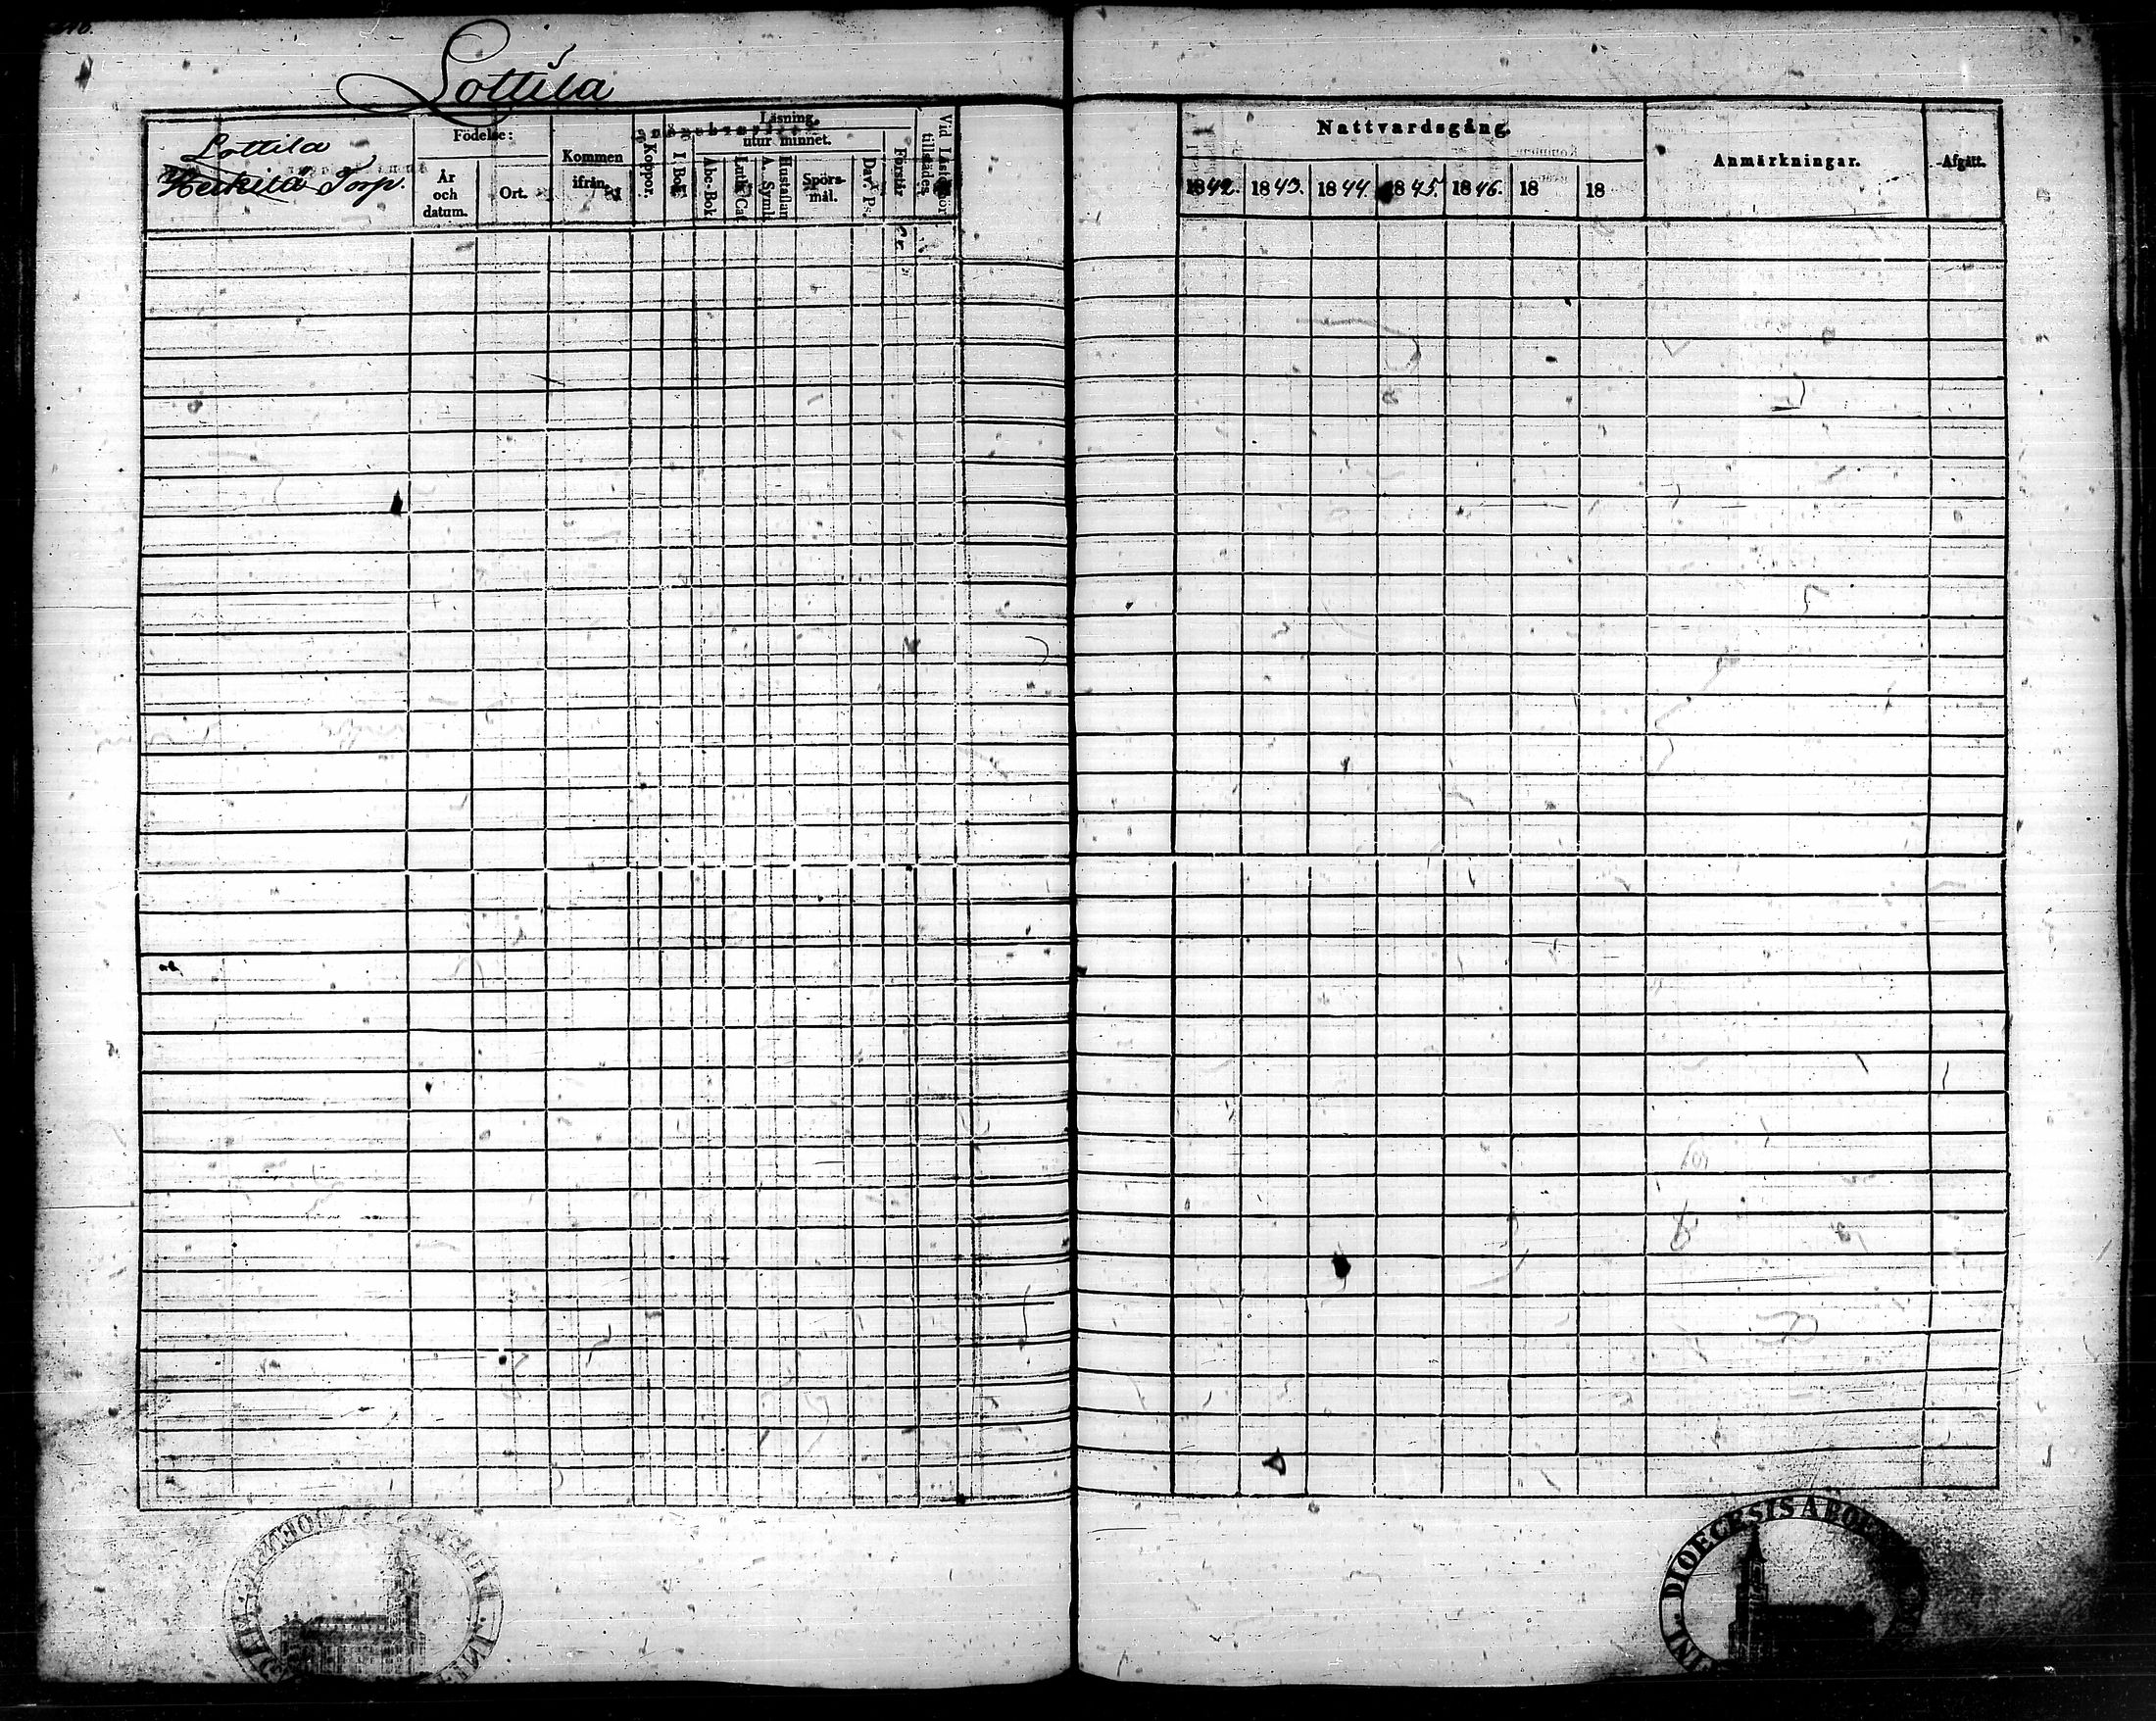 Lottila
Lottila
Heikilä Torp.
Födelse:
År
och
datum.
Ort.
Kommen
ifrån.
Koppor.
Läsning.
I Bok.
utur minnet.
Abc-Bok
Luth. Cat.
A. Symb.
Hustaflan
Spörs-
mål.
Dav. Ps.
Förstår
Vid Läsförhör
tillstädes.
Nattvardsgång.
1842. 1843. 1844. 1845. 1846. 18 18
Anmärkningar.
Afgått.
DIOECESIS